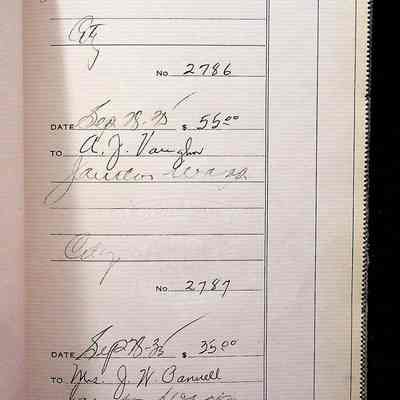 City
No 2786
DATE Sep 28-35 $ 55.00
TO A. J. Vaughn
Janitors Wages
City
No 2787
DATE Sep 28-35 $ 35.00
TO Mrs. J. W. Pannell